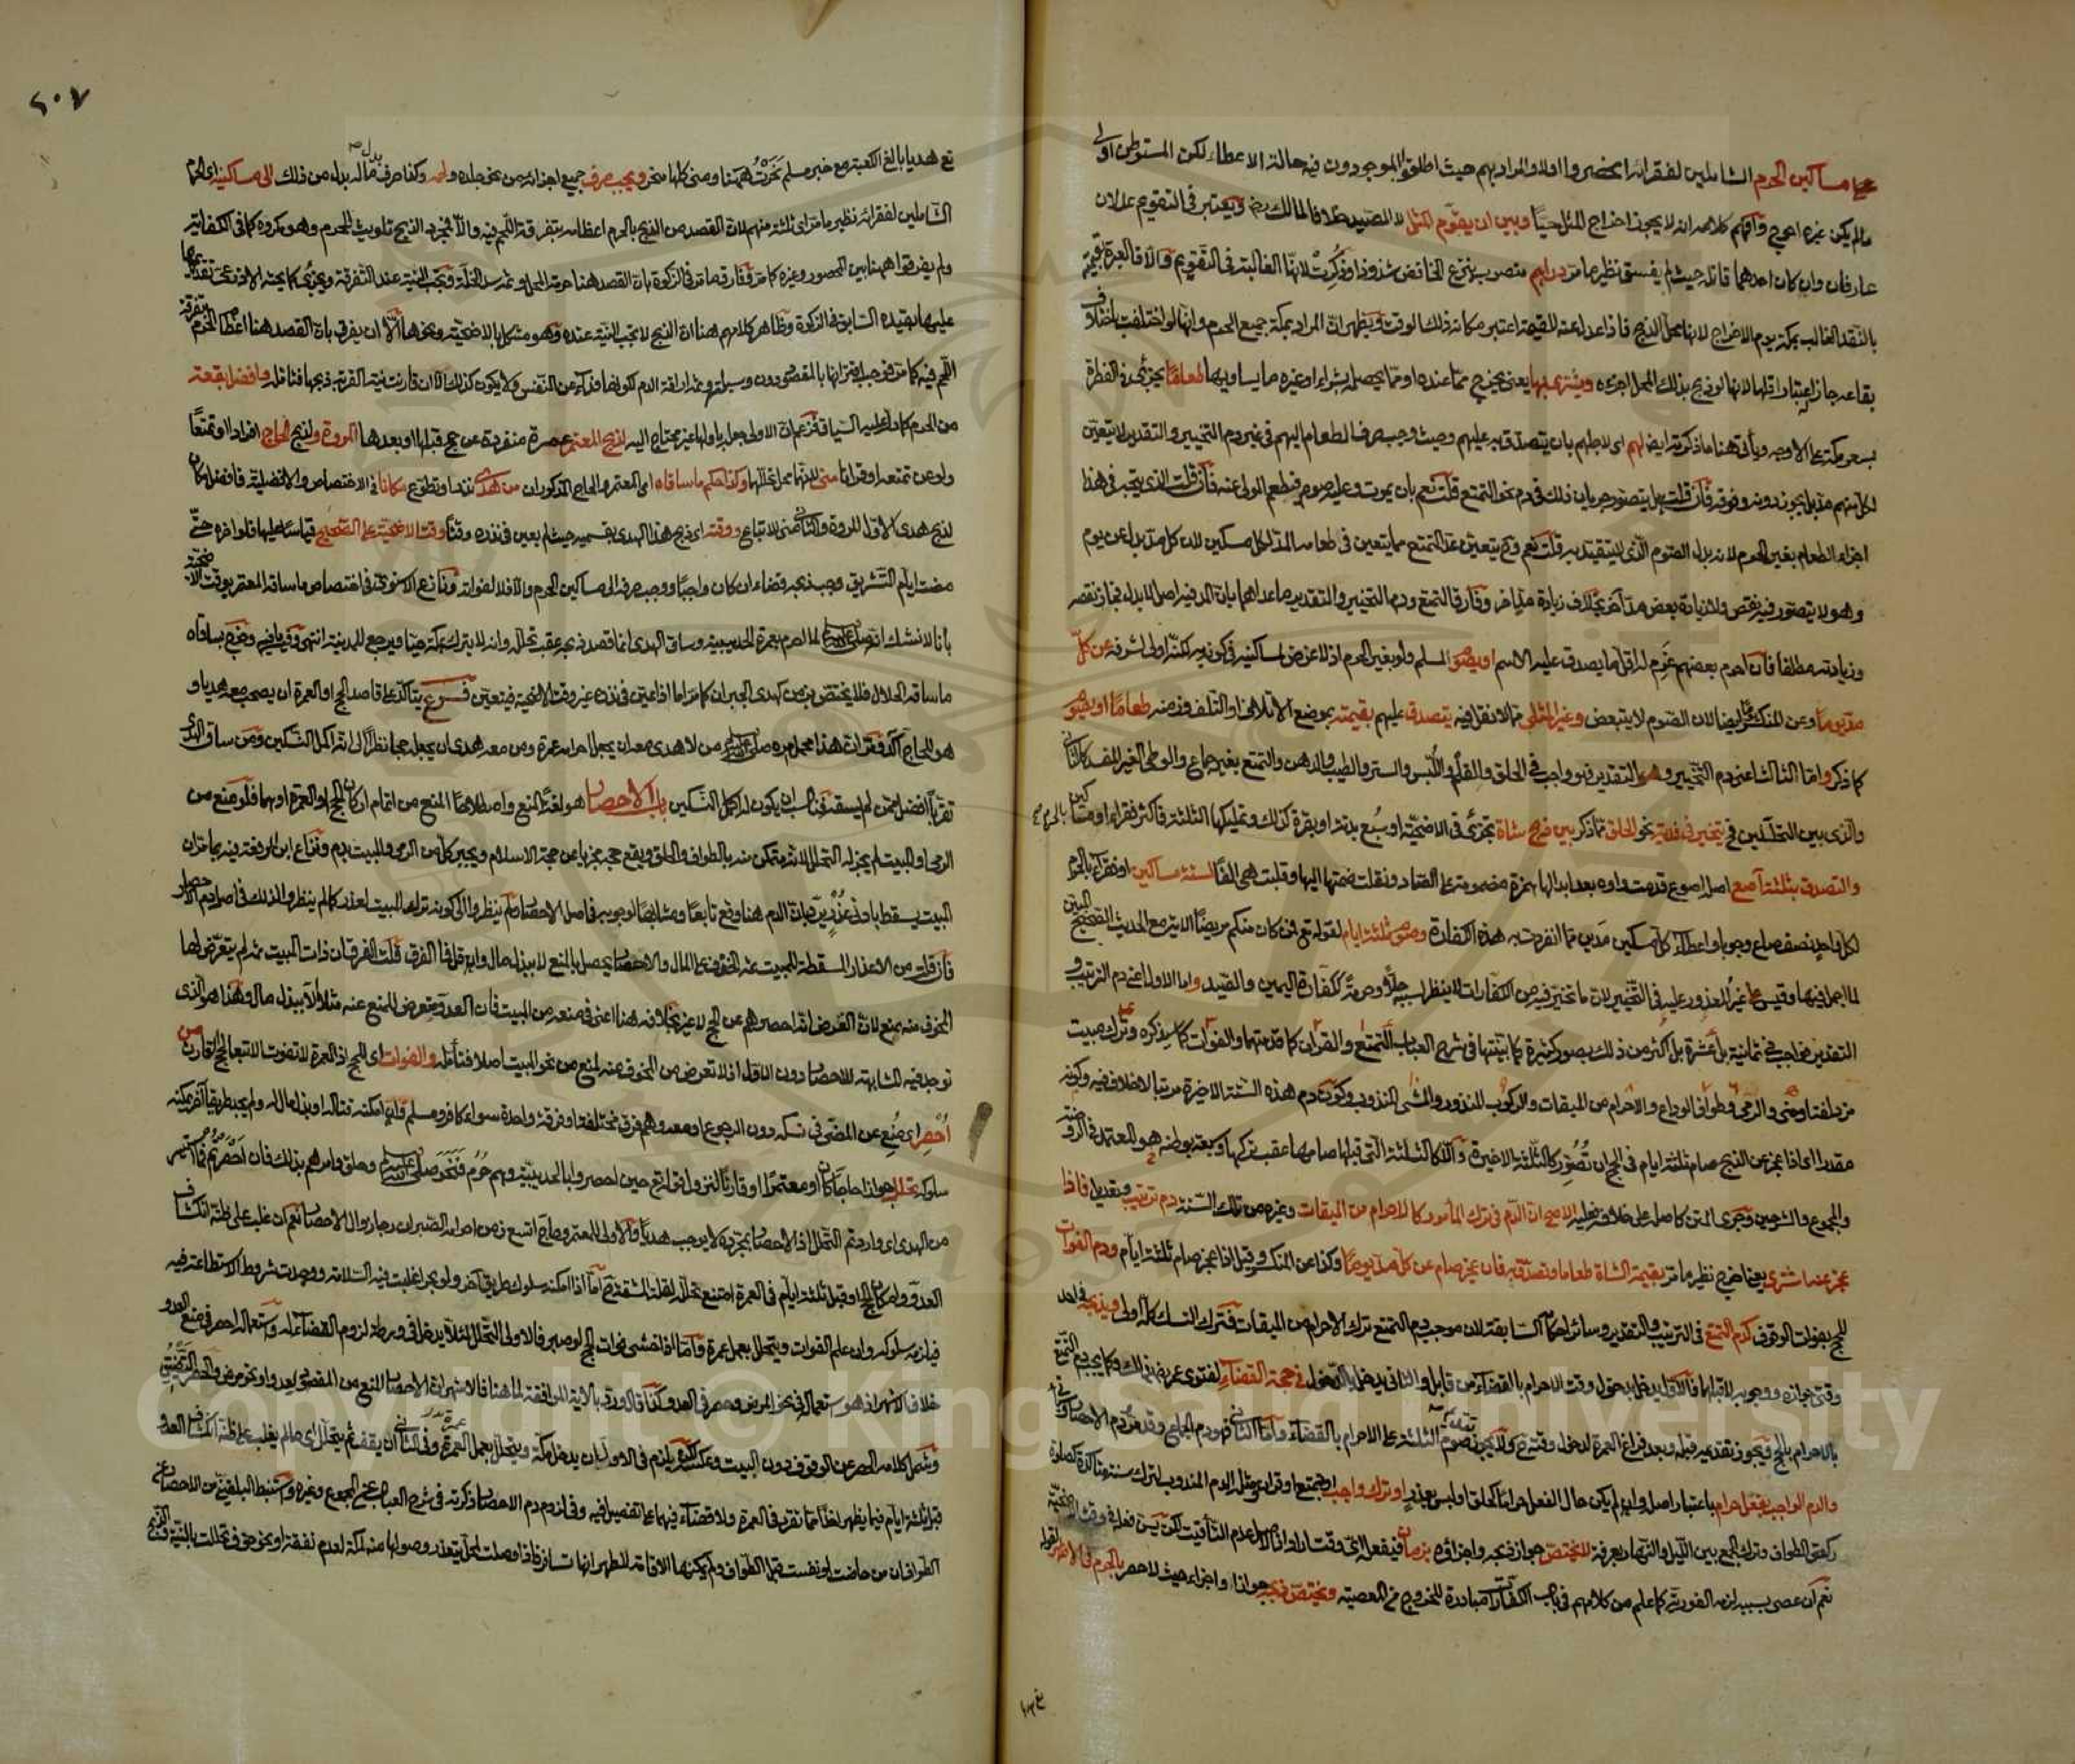 على مساكين الحرم الشاملين لفقرائه انحصروا اولا والمراد بهم حيث اطلقوا الموجودون فيه حالة الاعطاء لكن المستوطن اولى
مالم يكن غيره احوج وافهم كلامه انه لا يجوز اخراج المثل حيا وبين ان يقوم المثل لا الصيد خلافا لمالك رضي ويعتبر في التقويم عدلان
عارفان وان كان احدهما قاتله حيث لم يفسق نظير ما مر دراهم منصوب بنزع الخافض شذوذا وذكرت لانها الغالبة في التقويم والا فالعبرة بقيمته
بالنقد الغالب بمكة يوم الاخراج لانها محل الذبح فاذا عدل عنه للقيمة اعتبر مكانه ذلك الوقت ويظهر ان المراد بمكة جميع الحرم وانها لو اختلفت باختلاف
بقاعه جاز له اعتبار اقلها لانها لو ذبح بذلك المحل اجزءه ويشتري بها يعني يخرج مما عنده او مما يحصله بشراء او غيره ما يساويها طعاما يجزئ في الفطرة
بسعر مكة على الاوجه ويأتي هنا ما ذكرته ايضا لهم اي لاجلهم بان يتصدق به عليهم وحيث وجب صرف الطعام اليهم في غير دم التخيير والتقدير لا يتعين
لكل منهم مد بل يجوز دونه وفوقه فان قلت هل يتصور جريان ذلك في دم نحو التمتع قلت نعم بان يموت وعليه صوم فيطعم الولي عنه فان قلت الذي يتجه في هذا
اجزاء الطعام بغير الحرم لانه بدل الصوم الذي لا يتقيد به قلت نعم وح يتعين عند التمتع مما يتعين في طعامه المد لكل مسكين لان كل مد بدل عن يوم
وهو لا يتصور فيه نقص ولا زيادة بعض مد اخر بخلاف زيادة مد اخر وفارق التمتع ودم التخيير والتقدير ما عداهما بان المد فيه اصل لا بدل فجاز نقصه
وزيادته مطلقا فان احرم بعضهم غرم له اقل ما يصدق عليه الاسم او يصوم المسلم ولو بغير الحرم اذ لا غرض لمساكينه في كونه به لكنه اولى لشرفه عن كل
مد يوما وعن المنكسر ايضا لان الصوم لا يتبعض وغير المثلي مما لا نقل فيه يتصدق عليهم بقيمته بموضع الاتلاف او التلف وزمنه طعاما او يصوم
كما ذكر واما الثالث اعني دم التخيير والتقدير فهو واجب في الحلق والقلم واللبس والستر والطيب والدهن والتمتع بغير جماع والوطئ الغير المفسد كالثاني
والذي بين التحللين في تخير في فدية نحو الحلق مما ذكر بين ذبح شاة تجزئ في الاضحية او سبع بدنة او بقرة كذلك وتمليكها الثلاثة فاكثر فقراء او مساكين بالحرم
والتصدق بثلثة آصع اصله اصوع قدمت واوه بعد ابدالها همزة مضمومة على الصاد ونقلت ضمتها اليها وقلبت هي الفا لستة مساكين او فقراء بالحرم
لكل واحد نصف صاع وجوبا واعطاء كل مسكين مدين مما انفردت به هذه الكفارة وصوم ثلثة ايام لقوله تع فمن كان منكم مريضا الاية مع الحديث الصحيح المبين
لما اجمل فيها وقيس غير المعذور عليه في التخيير لان ما تخير فيه من الكفارات لا ينظر لسببه حلا وحرمة ككفارة اليمين والصيد واما الاول اعني دم الترتيب و
التقدير فواجب في ثمانية بل عشرة بل اكثر من ذلك بصور كثيرة كما بينتها في شرح العباب التمتع والقران كما قدمتهما والفوات كما سيذكره وترك مبيت
مزدلفة او منى والرمي وطواف الوداع والاحرام من الميقات والركوب المنذور والمشي المنذور وكون دم هذه الستة الاخيرة مرتبا لا خلاف فيه وكونه
مقدرا اي اذا عجز عن الذبح صام ثلثة ايام في الحج ان تصور كالثلثة الاخيرة والا كالثلثة التي قبلها صامها عقب تركها وسبعة بوطنه هو المعتمد في الروضة
والمجموع والشرحين وجرى المتن كاصله على خلافه بقوله الاصح ان الدم في ترك المأمور كالاحرام من الميقات وغيره من تلك الستة دم ترتيب وتعديل فاذا
عجز عنه اشترى يعني اخرج نظير ما مر بقيمة الشاة طعاما وتصدق به فان عجز صام عن كل مد يوما وكذا عن المنكسر وقيل اذا عجز صام ثلثة ايام ودم الفوات
للحج بفوات الوقوف كدم التمتع في الترتيب والتقدير وسائر احكامه السابقة لان موجب دم التمتع ترك الاحرام من الميقات فترك النسك كله اولى ويذبحه في احد
وقتي جوازه ووجوبه لا قبلهما فالاول يدخل بدخول وقت الاحرام بالقضاء من قابل والثاني يدخل بالدخول في حجة القضاء لفتوى عمر رضي بذلك وكما يجب دم التمتع
بالاحرام بالحج ويجوز تقديمه قبله وبعد فراغ العمرة لدخول وقته ح ولا يجوز تقديم صوم الثلثة على الاحرام بالقضاء واما الثاني فهو دم الجماع وقد مر ودم الاحصار وسيأتي
والدم الواجب بفعل حرام باعتبار اصله وان لم يكن حال الفعل حراما كالحلق او لبس بعذر او ترك واجب او تمتع او قران ومثله الدم المندوب لترك سنة متأكدة كصلوة
ركعتي الطواف وترك الجمع بين الليل والنهار بعرفة لا يختص جواز ذبحه واجزاؤه بزمان فيفعله اي وقت اراد اذ الاصل عدم التأقيت لكن يسن فعله في وقت الاضحية
نعم ان عصى بسببه لزمه الفورية كما علم من كلامهم في باب الكفارات مبادرة للخروج من المعصية ويختص ذبحه جوازا واجزاء حيث لا حصر بالحرم في الاظهر لقوله
٢٠٧
تع هديا بالغ الكعبة مع خبر مسلم نحرت ههنا ومنى كلها منحر ويجب صرف جميع اجزائه من نحو جلده ولحمه وكذا صرف ماله بدل من ذلك الى مساكينه اي الحرم
الشاملين لفقرائه نظير ما مر اي ثلثة منهم لان القصد من الذبح بالحرم اعظامه بتفرقة اللحم فيه والا فمجرد الذبح تلويث للحرم وهو مكروه كما في الكفاية
ولم يفرقوا ههنا بين المحصور وغيره كما مر وفارق ما مر في الزكوة بان القصد هنا حرمة المحل وثم سد الخلة وتجب النية عند التفرقة ويجزئ كما بحثه الاذرعي تقديمها
عليها بقيده السابق في الزكوة وظاهر كلامهم ههنا ان الذبح لا تجب النية عنده وهو مشكل بالاضحية ونحوها الا ان يفرق بان القصد هنا اعظام الحرم بتفرقة
اللحم فيه كما مر فوجب اقترانها بالمقصود دون وسيلته وثم اراقة الدم لكونها فداء عن النفس ولا يكون كذلك الا ان قارنت نية القربة ذبحها فتأمله وافضل بقعة
من الحرم كما دل عليه السياق فزعم ان الاولى جعل بدلها غير محتاج اليه لذبح المعتمر عمرة منفردة عن حج قبلها او بعدها المروة ولذبح الحاج افرادا او تمتعا
ولو عن تمتعه او قرانا منى لانها محل تحللهما وكذا حكم ما ساقاه اي المعتمر والحاج المذكوران من هدي نذر او تطوع مكانا في الاختصاص والافضلية فافضل مكان
لذبح هدي الاول المروة والثاني منى للاتباع ووقته اي ذبح هذا الهدي بقسميه حيث لم يعين في نذره وقتا وقت الاضحية على الصحيح قياسا عليها فلو اخره حتى
مضت ايام التشريق وجب ذبحه قضاء ان كان واجبا ووجب صرفه الى مساكين الحرم والا فلا لفواته ونازع الاسنوي في اختصاص ما ساقه المعتمر بوقت الاضحية
بانا لا نشك انه صلى الله عليه وسلم لما احرم بعمرة الحديبية وساق الهدي انما قصد ذبحه عقب تحلله وانه لا يتركه بمكة حيا ويرجع للمدينة انتهى وخرج بساقاه
ما ساقه الحلال فلا يختص بزمن كهدي الجبران كما مر اما اذا عين في نذره غير وقت الاضحية فيتعين فرع يتأكد على قاصد الحج او العمرة ان يصحب معه هديا و
هو للحاج آكد من لا هدي معه ان يجعل احرامه عمرة ومن معه هدي ان يجعل حجا نظرا الى انه اكمل النسكين ومن ساق الهدي
تقربا افضل ممن لم يسقه فناسب ان يكون له اكمل النسكين باب الاحصار هو لغة المنع واصطلاحا المنع من اتمام اركان الحج او العمرة او هما فلو منع من
الرمي او المبيت لم يجز له التحلل لانه متمكن منه بالطواف والحلق ويقع حجه مجزيا عن حجة الاسلام ويجبر كل من الرمي والمبيت بدم ونازع ابن الرفعة فيه بما مر ان
المبيت يسقط بادنى عذر بان الدم هنا وقع تابعا ومشابها لوجوبه في اصل الاحصار فلم ينظروا الى كونه ترك المبيت لعذر كما لم ينظروا لذلك في اصل دم الاحصار
فان قلت من الاعذار المسقطة للمبيت ثم الخوف على المال والاحصار يحصل بالمنع لا ببذل مال وان قل فما الفرق قلت الفرق ان ذات المبيت ثم لم يتعرض لها
المخوف منه بمنع لان الفرض انه احصر عن الحج لا غير بخلافه هنا اعني في منعه من المبيت فان العدو متعرض للمنع عنه مثلا الا ببذل مال وهذا هو الذي
توجد فيه المشابهة للاحصار دون الاول اذ لا تعرض من المخوف منه لمنع من نحو المبيت اصلا فتأمله والفوات اي للحج اذ العمرة لا تفوت الا تبعا لحج القارن من
أحصر اي منع عن المضي في نسكه دون الرجوع او معه وهم فرق مختلفة او فرقة واحدة سواء كافر ومسلم وان امكنه قتاله او بذل مال له ولم يجد طريقا آخر يمكنه
سلوكه تحلل جوازا حاجا كان او معتمرا او قارنا لنزول قوله تع حين احصروا بالحديبية وهم حرم فنحر صلى الله عليه وسلم وحلق وامرهم بذلك فان احصرتم فما استيسر
من الهدي اي واردتم التحلل اذ الاحصار بمجرده لا يوجب هديا والاولى للمعتمر وحاج اتسع زمن احرامه الصبر ان رجا زوال الاحصار نعم ان غلب على ظنه انكشاف
العدو وامكان الحج او قبل ثلثة ايام في العمرة امتنع تحلله لقلة المشقة ح اما اذا امكنه سلوك طريق آخر ولو بحرا غلبت فيه السلامة ووجدت شروط الاستطاعة فيه
فيلزمه سلوكه وان علم الفوات ويتحلل بعمل عمرة واما اذا خشي فوات الحج لو صبر فالاولى التحلل لئلا يدخل في ورطة لزوم القضاء له واستعماله احصر في منع العدو
خلاف الاشهر اذ هو استعماله في نحو المرض وحصر في العدو كما قالا وورد بالاية الموافقة لما هنا فالاشهر ان الاحصار المنع من المقصود بعدو او نحو مرض والحصر التضييق
وشمل كلامه الحصر عن الوقوف دون البيت وعكسه لكن يلزمه في الاول ان يدخل مكة ويتحلل بعمل عمرة وفي الثاني ان يقف ثم يتحلل اي ما لم يغلب على ظنه انكشاف العدو
قبل ثلثة ايام فيما يظهر اخذا مما تقرر في العمرة ولا قضاء فيهما على تفصيل فيه وفي لزوم دم الاحصار ذكرته في شرح العباب عن المجموع وغيره واستنبط البلقيني من الاحصار عن
الطواف ان من حاضت او نفست قبل الطواف ولم يمكنها الاقامة للطهر انها تسافر فاذا وصلت لمحل يتعذر وصولها منه لمكة لعدم نفقة او نحو خوف تحللت بالنية والذبح
Copyright © King Saud University
1957